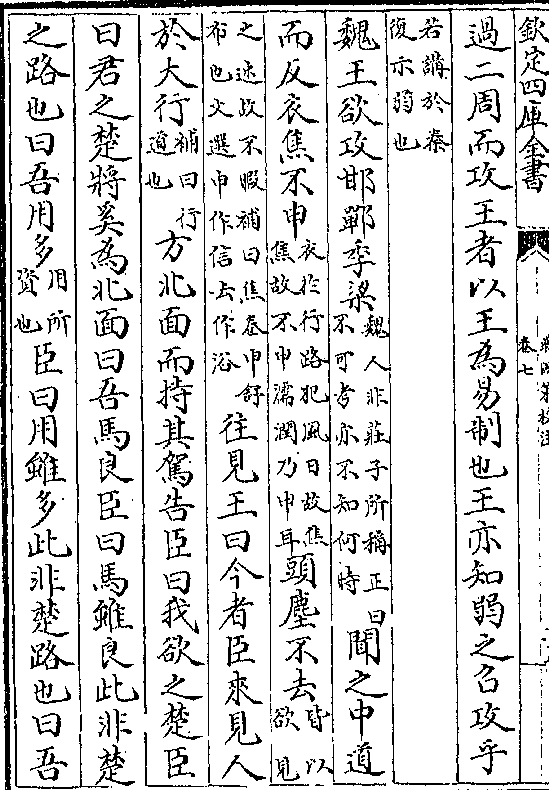 欽定四庫全書
卷七
過二周而攻王者以王為易制也王亦知弱之召攻乎
若講於秦
復亦弱也
魏王欲攻邯鄲季梁魏人非莊子所稱正曰
不可考亦不知何時聞之中道
而反衣焦不申衣於行路犯風日故焦
焦故不申濡潤乃申耳頭塵不去皆以
欲見
之速故不暇補曰焦卷申舒
布也文選申作信去作浴往見王曰今者臣來見人
於大行補曰行
道也方北面而持其駕告臣曰我欲之楚臣
曰君之楚將奚為北面曰吾馬良臣曰馬雖良此非楚
之路也曰吾用多用所
資也臣曰用雖多此非楚路也曰吾